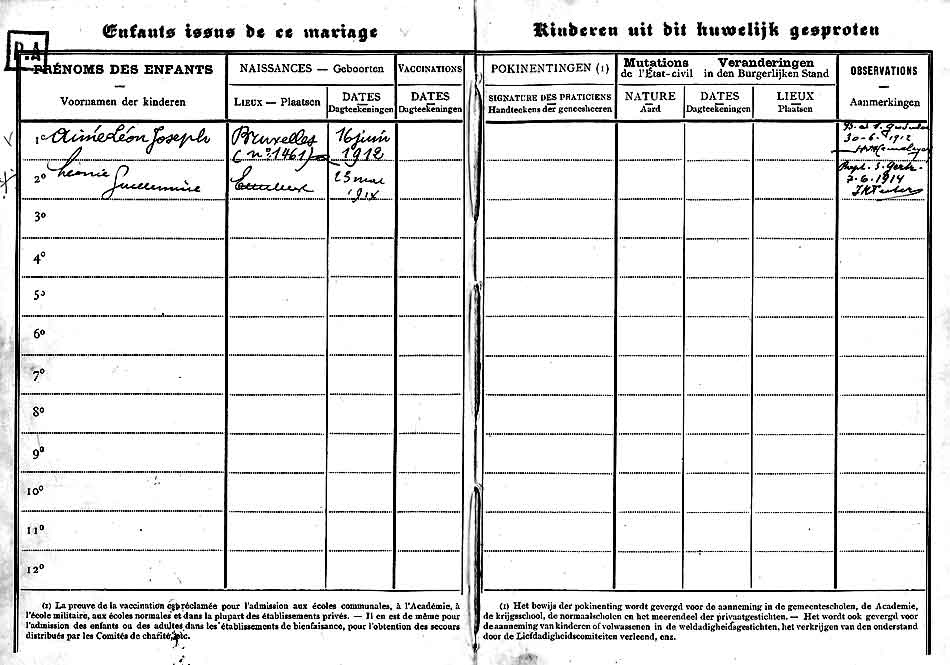 Enfants issus de ce mariage
P.A
PRÉNOMS DES ENFANTS
Voornamen der kinderen
NAISSANCES — Geboorten
LIEUX — Plaatsen
DATES
Dagteekeningen
VACCINATIONS
DATES
Dagteekeningen
1º Aimé Léon Joseph
Bruxelles
(nº 1461)
16 juin
1912
2º Léonie
Guillemine
25 mai
3º
4º
5º
6º
7º
8º
9º
10º
11º
12º
(1) La preuve de la vaccination est réclamée pour l'admission aux écoles communales, à l'Académie, à
l'école militaire, aux écoles normales et dans la plupart des établissements privés. — Il en est de même pour
l'admission des enfants ou des adultes dans les établissements de bienfaisance, pour l'obtention des secours
distribués par les Comités de charité, etc.
Kinderen uit dit huwelijk gesproten
POKINENTINGEN (1)
SIGNATURE DES PRATICIENS
Handteekens der geneesheeren
Mutations Veranderingen
de l'État-civil in den Burgerlijken Stand
NATURE
Aard
DATES
Dagteekeningen
LIEUX
Plaatsen
OBSERVATIONS
Aanmerkingen
30-6-1912
Bapt. S. Gert.
7-6-1914
(1) Het bowijs der pokinenting wordt gevergd voor de aanneming in de gemeentescholen, de Academie,
de krijgsschool, de normaalscholen en het meerendeel der privaatgestichten. — Het wordt ook gevergd voor
de aanneming van kinderen of volwassenen in de weldadigheidsgestichten, het verkrijgen van den onderstand
door de Liefdadigheidscomiteiten verleend, enz.